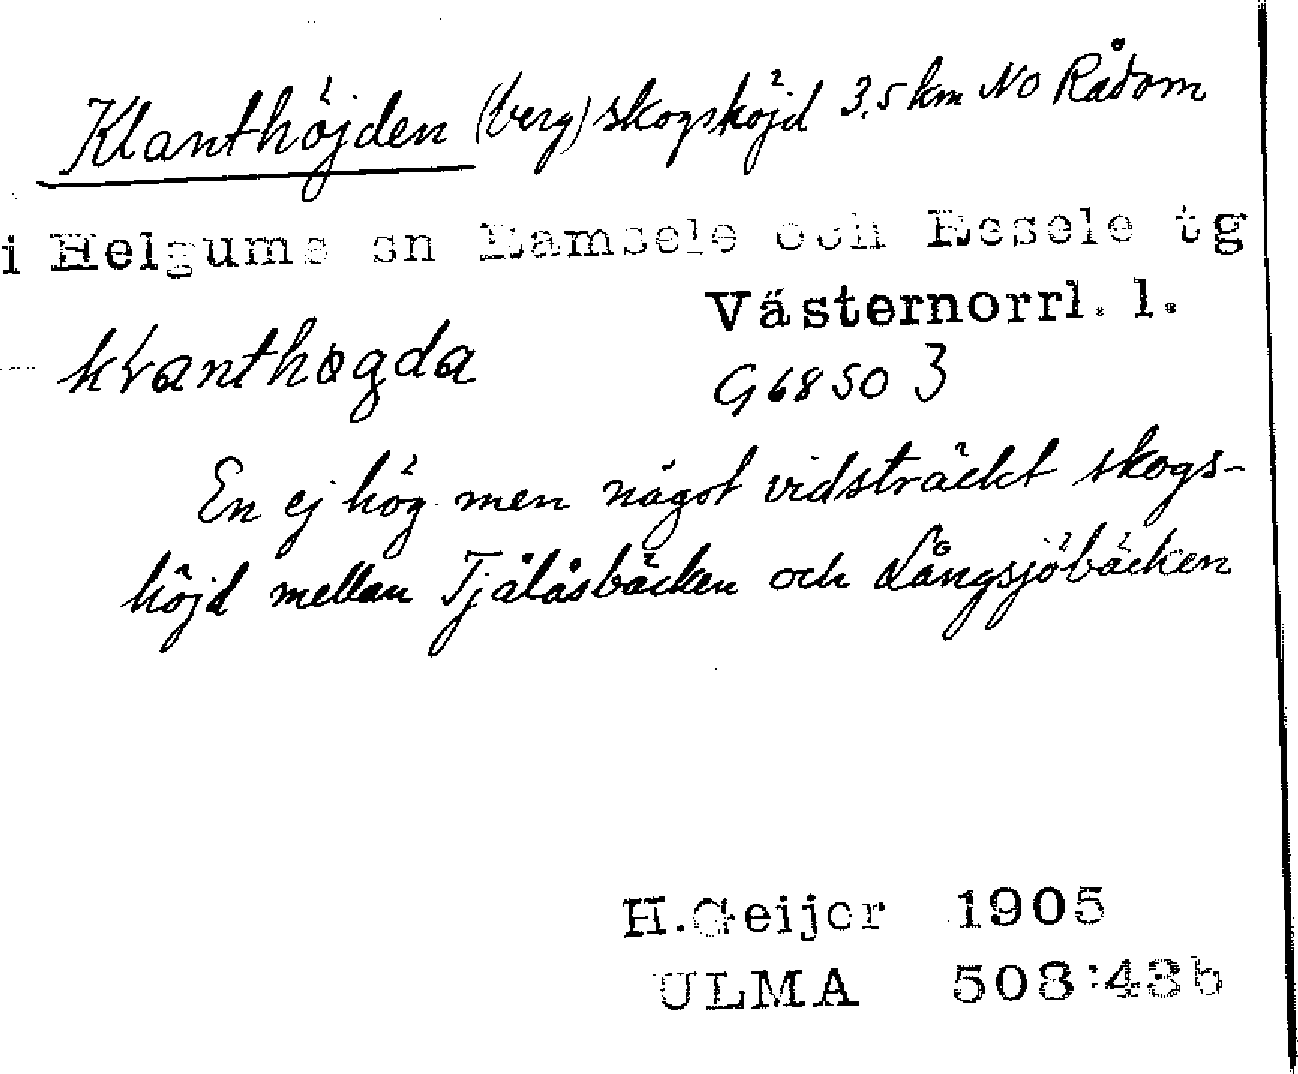 Klanthöjden (berg) skogshöjd 3,5 km NO Rådom
i Helgums sn Ramsele och Resele tg
Västernorrl. l.
klanthøgda G6850 3
En ej hög men något vidsträckt skogs-
höjd mellan Tjälåsbäcken och Långsjöbäcken
H.Geijer 1905
ULMA 508:43b